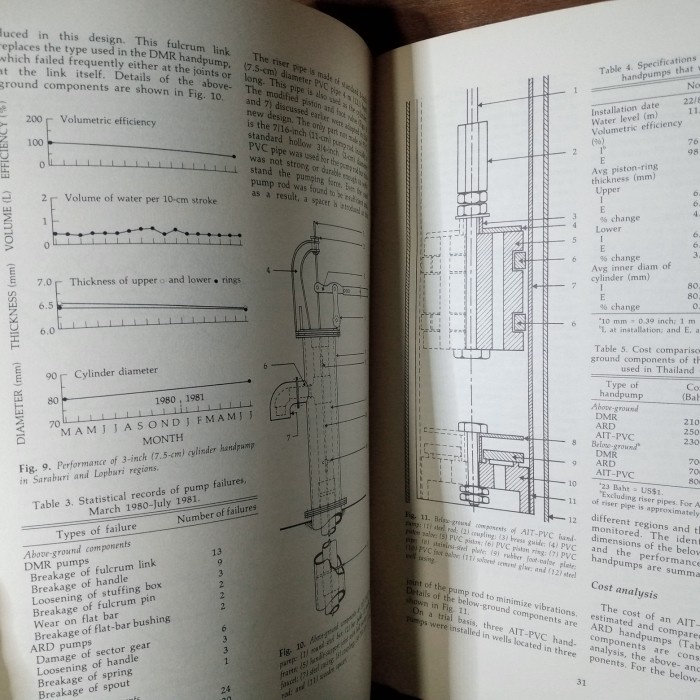 duced in this design. This fulcrum link
replaces the type used in the DMR handpump,
which failed frequently either at the joints or
at the link itself. Details of the above-
ground components are shown in Fig. 10.
EFFICIENCY (%)
200
100
0
Volumetric efficiency
VOLUME (L)
2
1
0
Volume of water per 10-cm stroke
THICKNESS (mm)
7.0
6.5
6.0
Thickness of upper ○ and lower • rings
DIAMETER (mm)
90
80
70
Cylinder diameter
1980 1981
M A M J J A S O N D J F M A M J J
MONTH
Fig. 9. Performance of 3-inch (7.5-cm) cylinder handpump
in Saraburi and Lopburi regions.
Table 3. Statistical records of pump failures,
March 1980–July 1981.
Types of failure Number of failures
Above-ground components
DMR pumps
Breakage of fulcrum link 13
Breakage of handle 9
Loosening of stuffing box 3
Breakage of fulcrum pin 2
Wear on flat bar 2
Breakage of flat-bar bushing 2
ARD pumps
Damage of sector gear 6
Loosening of handle 3
Breakage of spring 3
Breakage of spout 1
24
The riser pipe is made of standard
(7.5-cm) diameter PVC pipe 4 m
long. This pipe is also used as the
The modified piston and foot valve
and 7) discussed earlier were
new design. The only part not made
is the 7/16-inch (11-cm) pump rod.
standard hollow 3/4-inch
PVC pipe was used for the pump rod
was not strong or durable enough to
stand the pumping force. Even
pump rod was found to be
as a result, a spacer is introduced
4
6
7
Fig. 10. Above-ground
1
2
3
4
5
6
7
6
8
9
10
11
12
Fig. 11. Below-ground components of AIT-PVC hand-
pump: (1) steel rod; (2) coupling; (3) brass guide; (4) PVC
valve; (5) PVC piston; (6) PVC piston ring; (7) PVC
(8) stainless-steel plate; (9) rubber foot-valve plate;
(10) PVC foot valve; (11) solvent cement glue; and (12) steel
well casing.
joint of the pump rod to minimize vibrations.
Details of the below-ground components are
shown in Fig. 11.
On a trial basis, three AIT-PVC hand-
pumps were installed in wells located in three
31
Table 4. Specifications
handpumps that
No
Installation date 22/
Water level (m) 11.
Volumetric efficiency
(%)
I 76
E 98
Avg piston-ring
thickness (mm)
Upper
I 6.
E 6.
% change
Lower
I 6.
E 6.
% change 3.
Avg inner diam of
cylinder (mm)
I 80.
E 80.
% change 0.
10 mm = 0.39 inch; 1 m
I, at installation; and E, a
Table 5. Cost comparison
ground components of th
used in Thailand
Type of Co
handpump (Bah
Above-ground
DMR 210
ARD 250
AIT-PVC 230
Below-ground
DMR 70
ARD 70
AIT-PVC 80
23 Baht = US$1.
Excluding riser pipes. For A
of riser pipe is approximately
different regions and t
monitored. The iden
dimensions of the belo
and the performance
handpumps are summ
Cost analysis
The cost of an AIT-
estimated and compare
ARD handpumps (Tab
components are cons
analysis, the above- and
ponents. For the below